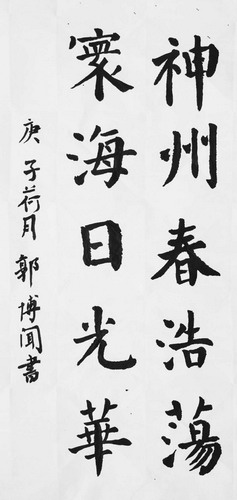 神州春浩蕩
寰海日光華
庚子荷月郭博聞書